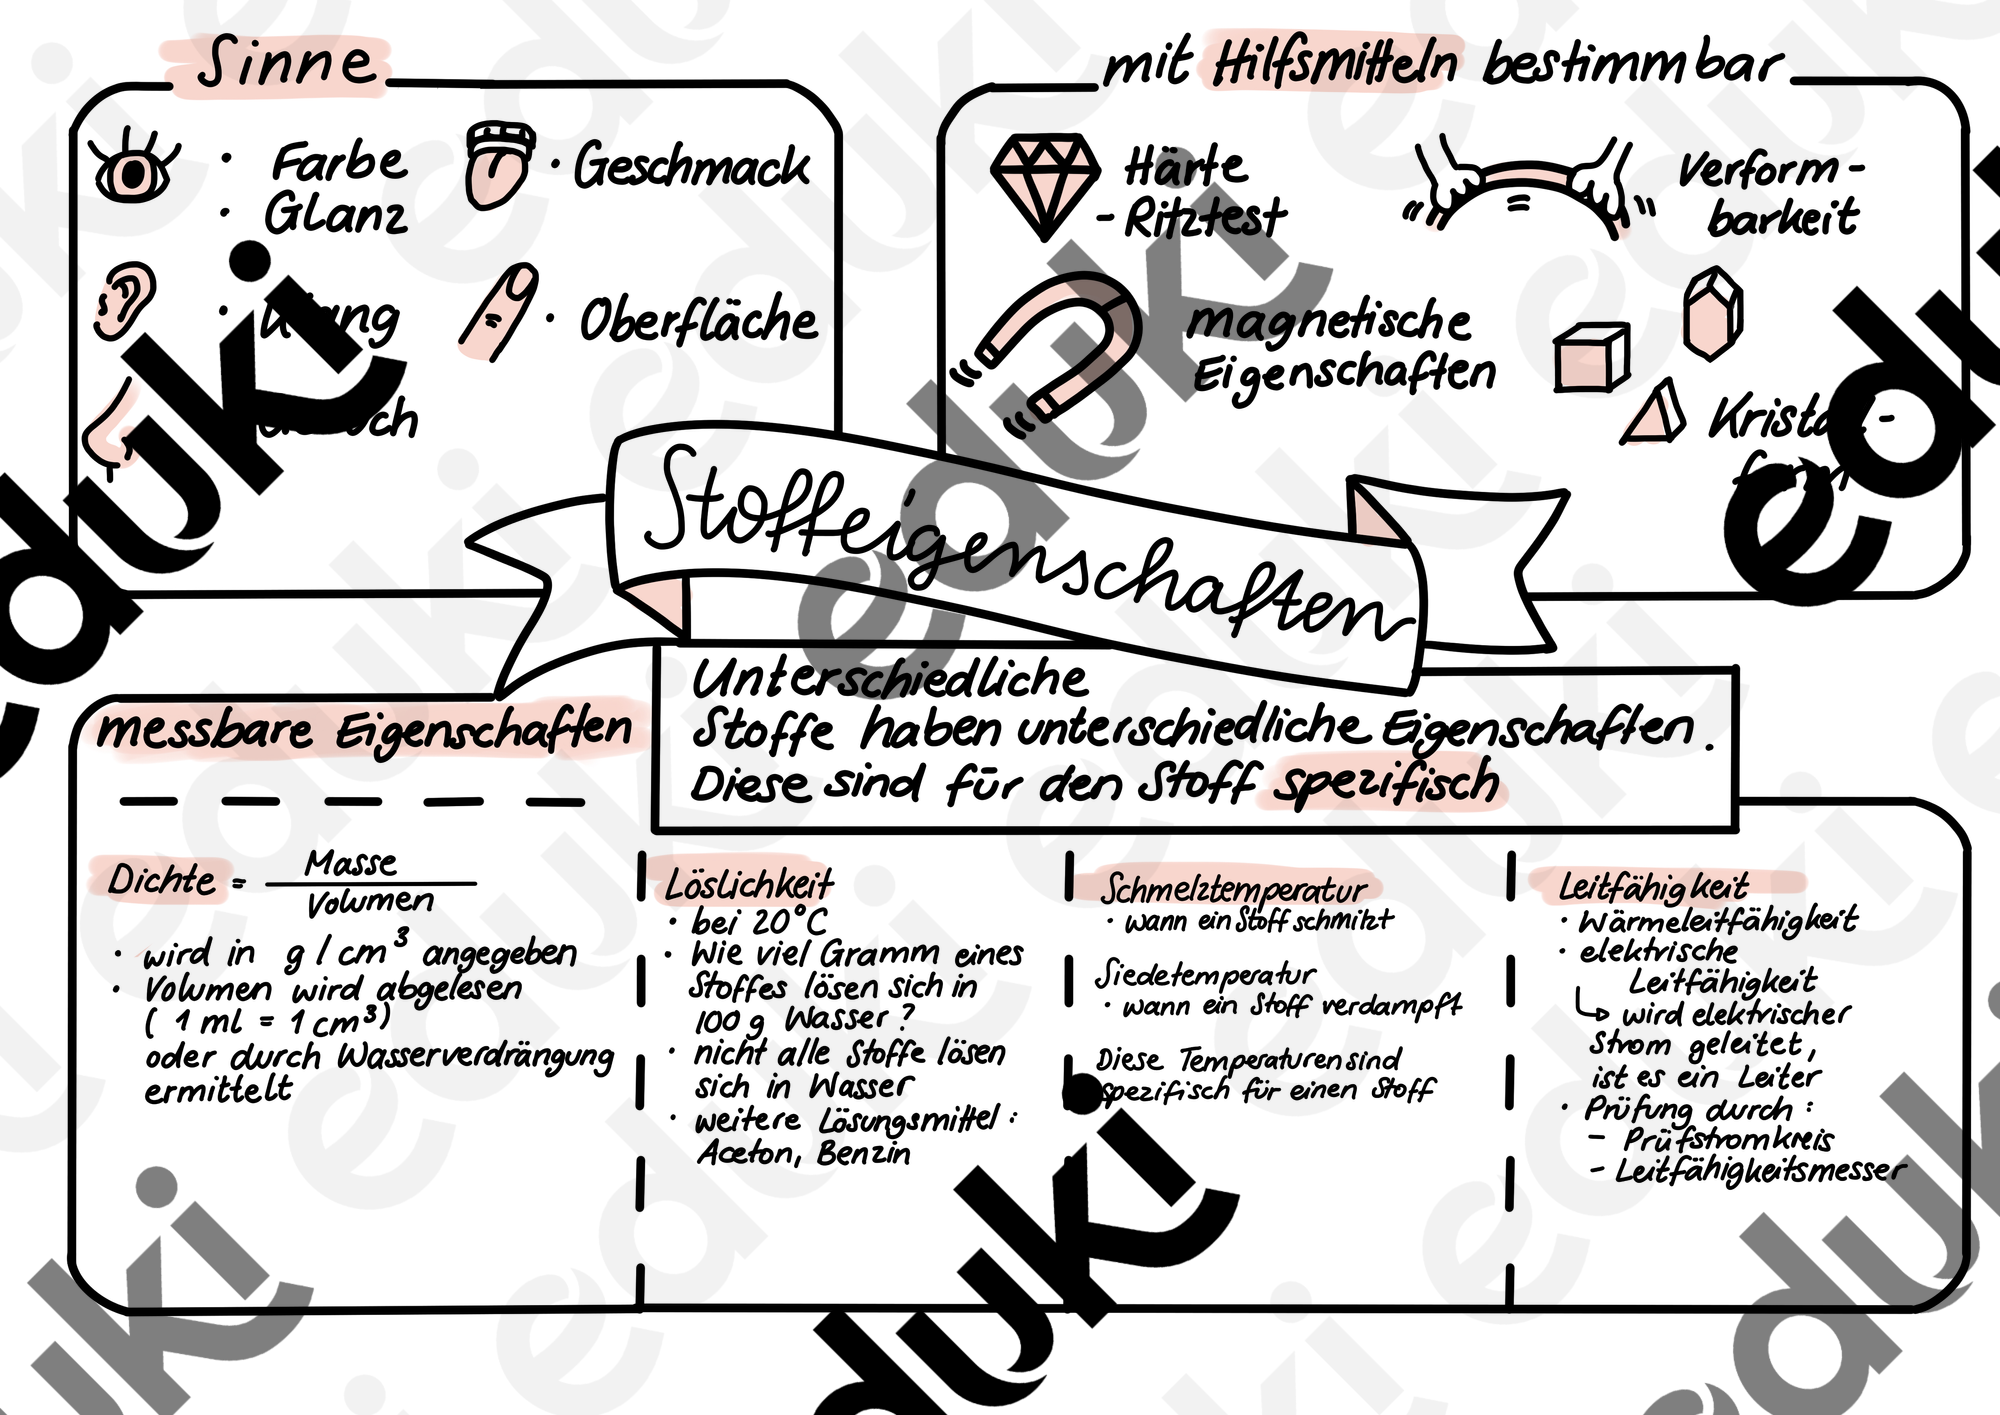 Sinne
• Farbe
• Glanz
• Geschmack
• Klang
• Oberfläche
mit Hilfsmitteln bestimmbar
Härte
- Ritztest
Verform-
barkeit
magnetische
Eigenschaften
Stoffeigenschaften
Unterschiedliche
Stoffe haben unterschiedliche Eigenschaften.
Diese sind für den Stoff spezifisch
messbare Eigenschaften
Dichte = Masse
Volumen
• wird in g/cm³ angegeben
• Volumen wird abgelesen
( 1 ml = 1 cm³)
oder durch Wasserverdrängung
ermittelt
Löslichkeit
• bei 20°C
• Wie viel Gramm eines
Stoffes lösen sich in
100 g Wasser?
• nicht alle Stoffe lösen
sich in Wasser
• weitere Lösungsmittel:
Aceton, Benzin
Schmelztemperatur
• wann ein Stoff schmilzt
Siedetemperatur
• wann ein Stoff verdampft
Diese Temperaturen sind
spezifisch für einen Stoff
Leitfähigkeit
• Wärmeleitfähigkeit
• elektrische
Leitfähigkeit
↳ wird elektrischer
Strom geleitet,
ist es ein Leiter
• Prüfung durch:
- Prüfstromkreis
- Leitfähigkeitsmesser
eduki
eduki
eduki
eduki